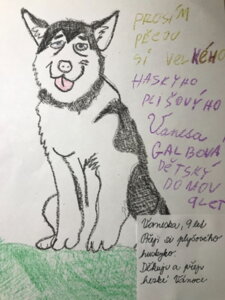 PROSÍM
PŘEJU
SI VELKÉHO
HASKYHO
PLYŠOVÝHO
Vanesa
GALBOVÁ
DĚTSKÝ
DOMOV
9 LET
Vaneska, 9 let
Přeji si plyšového
huskyho.
Děkuji a přeju
hezké Vánoce